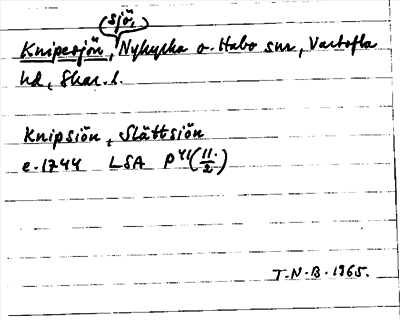 (sjö,)
Knipesjön, Nykyrka o. Habo snr, Vartofta
hd, Skar. l.
Knipsiön, Slättsiön
e. 1744 LSA P41 (11/2)
T.N.B. 1965.